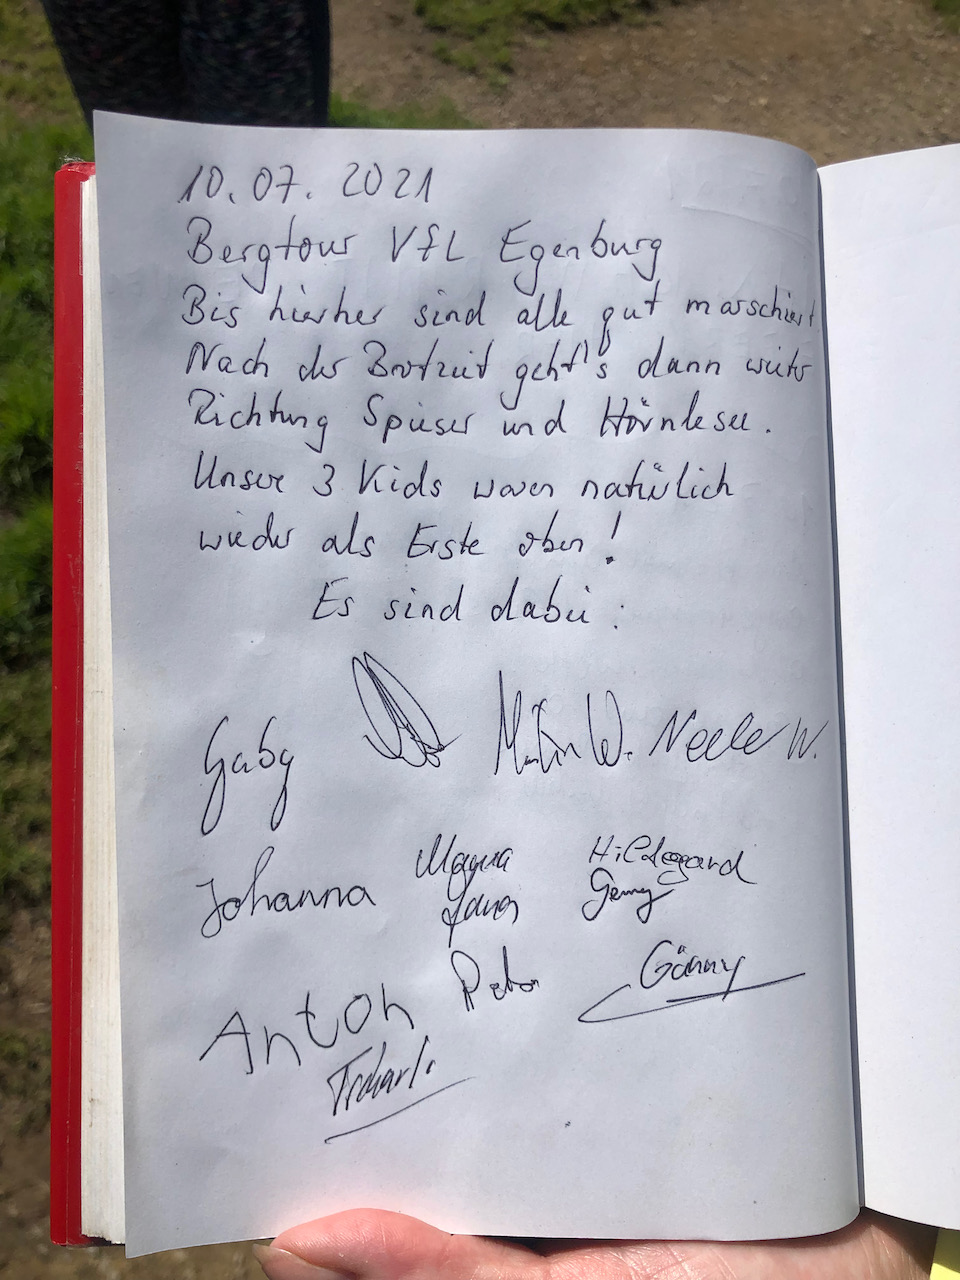 10.07.2021
Bergtour VfL Egenburg
Bis hierher sind alle gut marschiert
Nach der Brotzeit geht's dann weiter
Richtung Spieser und Hörnlesee.
Unsere 3 Kids waren natürlich
wieder als Erste oben!
Es sind dabei:
Gaby Martin W. Neele W.
Johanna Magnus Hildegard
Jonas Genny
Anton Peter Günny